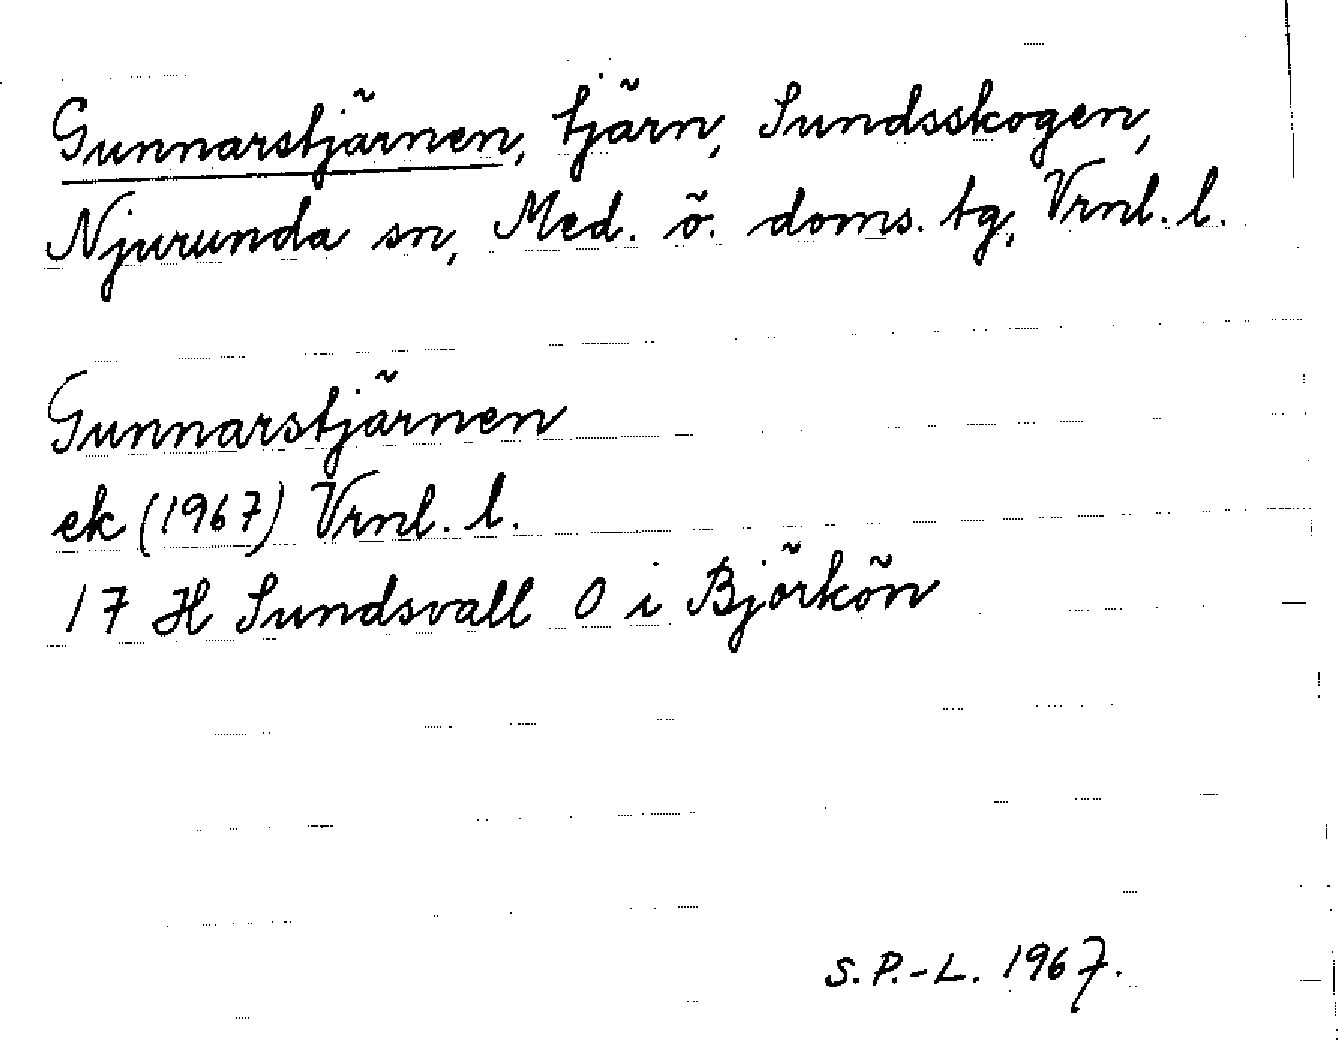 Gunnarstjärnen, tjärn, Sundsskogen,
Njurunda sn, Med. ö. doms. tg, Vrnl. l.
Gunnarstjärnen
ek (1967) Vrnl. l.
17 H Sundsvall O i Björkön
S.P.-L. 1967.